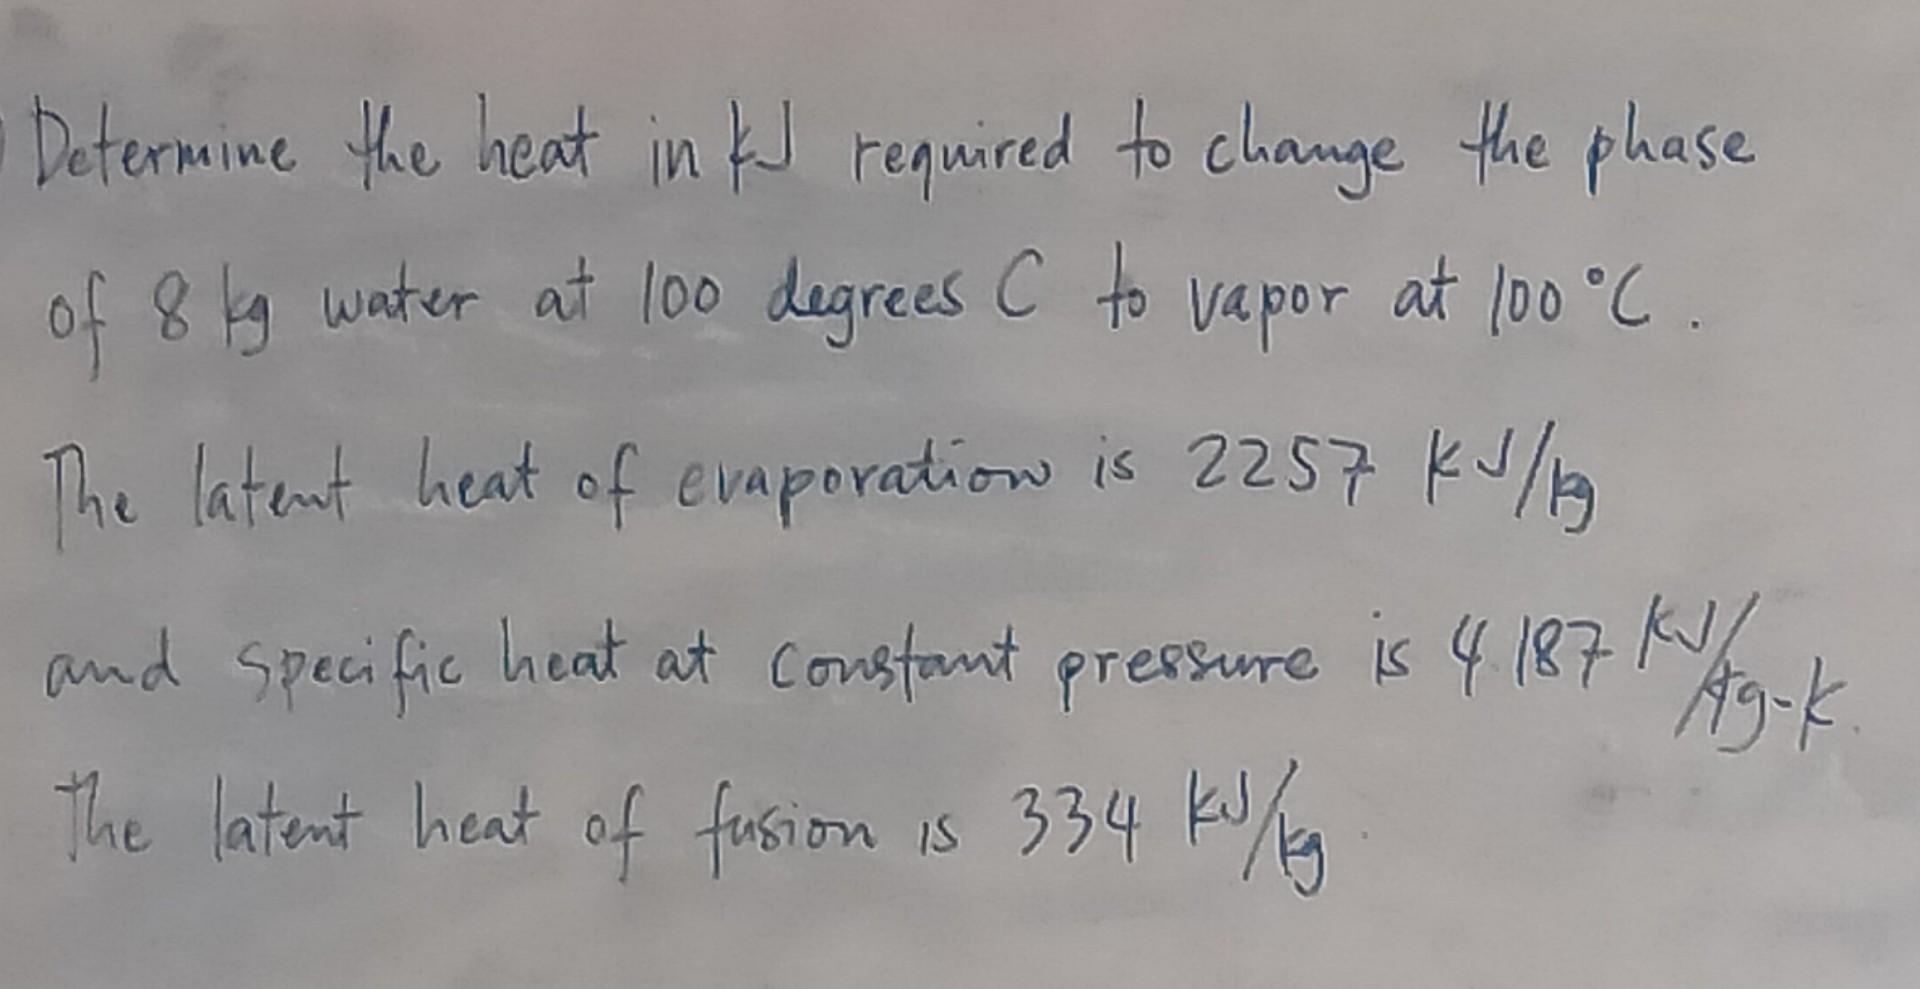 Determine the heat in kJ required to change the phase
of 8 kg water at 100 degrees C to vapor at 100 °C.
The latent heat of evaporation is 2257 kJ/kg
and specific heat at constant pressure is 4.187 kJ/kg-K.
The latent heat of fusion is 334 kJ/kg.